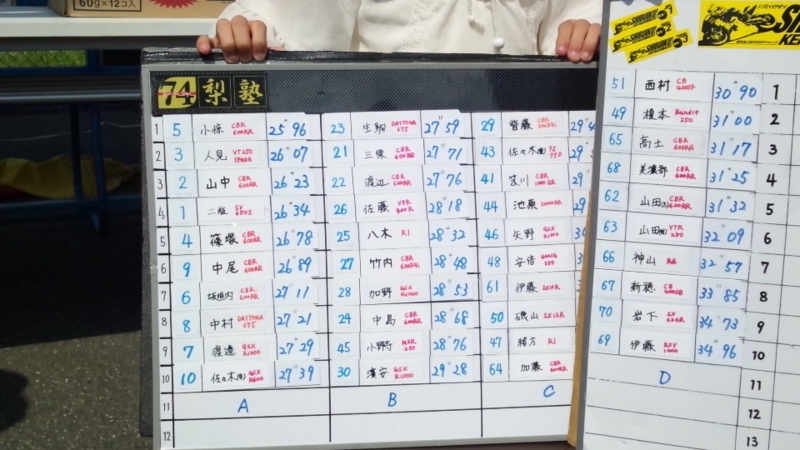 60g×12コ入
74 梨塾
1 5 小篠 CBR 600RR 25"96
2 3 人見 VTR250 26"07
3 2 山中 CBR 600RR 26"23
4 1 二瓶 SV 26"34
5 4 篠塚 CBR 600RR 26"78
6 9 中尾 CBR 600RR 26"89
7 6 坂垣内 CBR 600RR 27"11
8 8 中村 DAYTONA 675 27"21
9 7 渡邉 GSX R1000 27"29
10 10 佐々木 GSX R600 27"39
11 A
12
23 生駒 DAYTONA 675 27"59
21 三条 CBR 27"71
22 渡辺 CBR 600RR 27"76
26 佐藤 VFR 28"18
25 八木 R1 28"32
27 竹内 CBR 28"48
28 加野 GSX R1000 28"53
24 中島 CBR 600RR 28"68
45 小野寺 NSR 250 28"76
30 濱安 GSX R1000 29"28
B
29 齋藤 CBR 29
43 佐々木
41 笈川 CBR 29
44 池原 29
46 矢野 GSX R1000
48 安倍
61 伊藤
50 磯山
47 緒方 R1
64 加藤 CBR 600RR
C
51 西村 CB 30"90 1
49 榎本 Bandit 250 31"00 2
65 高土 CBR 600RR 31"17 3
68 美濃部 CBR 600RR 31"25 4
62 山田 CBR 600RR 31"32 5
63 山田 VTR 250 32"09 6
66 神山 R6 32"57 7
67 新穂 CB 33"85 8
70 岩下 34"73 9
69 伊藤 RSV 1000 34"96 10
D 11
12
13